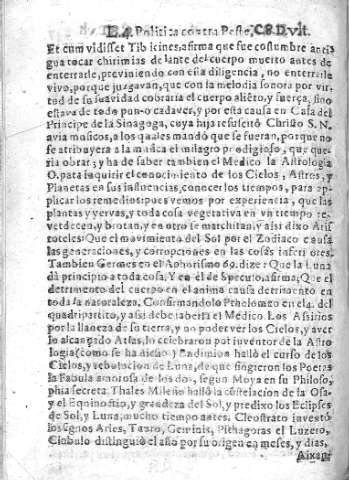 Politica contra Peste,
Et cum vidisset Tibicines, afirma que fue costumbre anti
gua tocar chirimias delante del cuerpo muerto antes de
enterrarle, previniendo con esta diligencia, no enterrarle
vivo, porque juzgavan, que con la melodia sonora por vir-
tud de su suavidad cobraria el cuerpo aliẽto, y fuerça, sino
estava de todo punto cadaver, y por esta causa en Casa del
Principe de la Sinagoga, cuya hija resuscitò Christo S. N.
avia musicos, a los quales mandò que se fueran, porque no
se atribuyera a la musica el milagro prodigioso, que que-
ria obrar; y ha de saber tambien el Medico la Astrologia
O. para inquirir el conocimiento de los Cielos, Astros, y
Planetas en sus influencias, conocer los tiempos, para ap-
plicar los remedios: pues vemos por experiencia, que las
plantas y yervas, y toda cosa vegetativa en vn tiempo re-
verdecen, y brotan, y en otro se marchitan, y assi dixo Aris
toteles: Que el movimiento del Sol por el Zodiaco causa
las generaciones, y corrupciones en las cosas inferiores.
Tambien Germes en el Aphorismo 69. dize: Que la Luna
dà principio a toda cosa. Y en el de Speculo, afirma; Que el
detrimento del cuerpo en el anima causa detrimento en
toda la naturaleza. Confirmandolo Ptholomeo en el
quadripartito, y assi debe saberla el Medico. Los Assirios
por la llaneza de su tierra, y no poder ver los Cielos, y aver
lo alcançado Atlas, lo celebraron por inventor de la Astro
logia (como se ha dicho) Endimion hallò el curso de los
Cielos, y rebolucion de Luna, de que fingieron los Poetas
la Fabula amorosa de los dos, segun Moya en su Philoso,
phia secreta. Thales Milesio hallò la costelacion de la Osa
y el Equinoctio, y grandeza del Sol, y predixo los Eclipses
de Sol, y Luna, mucho tiempo antes. Cleostrato inventò
los signos Aries, Tauro, Geminis, Pithagoras el Luzero,
Cleobulo distinguiò el año por su origen en meses, y dias,